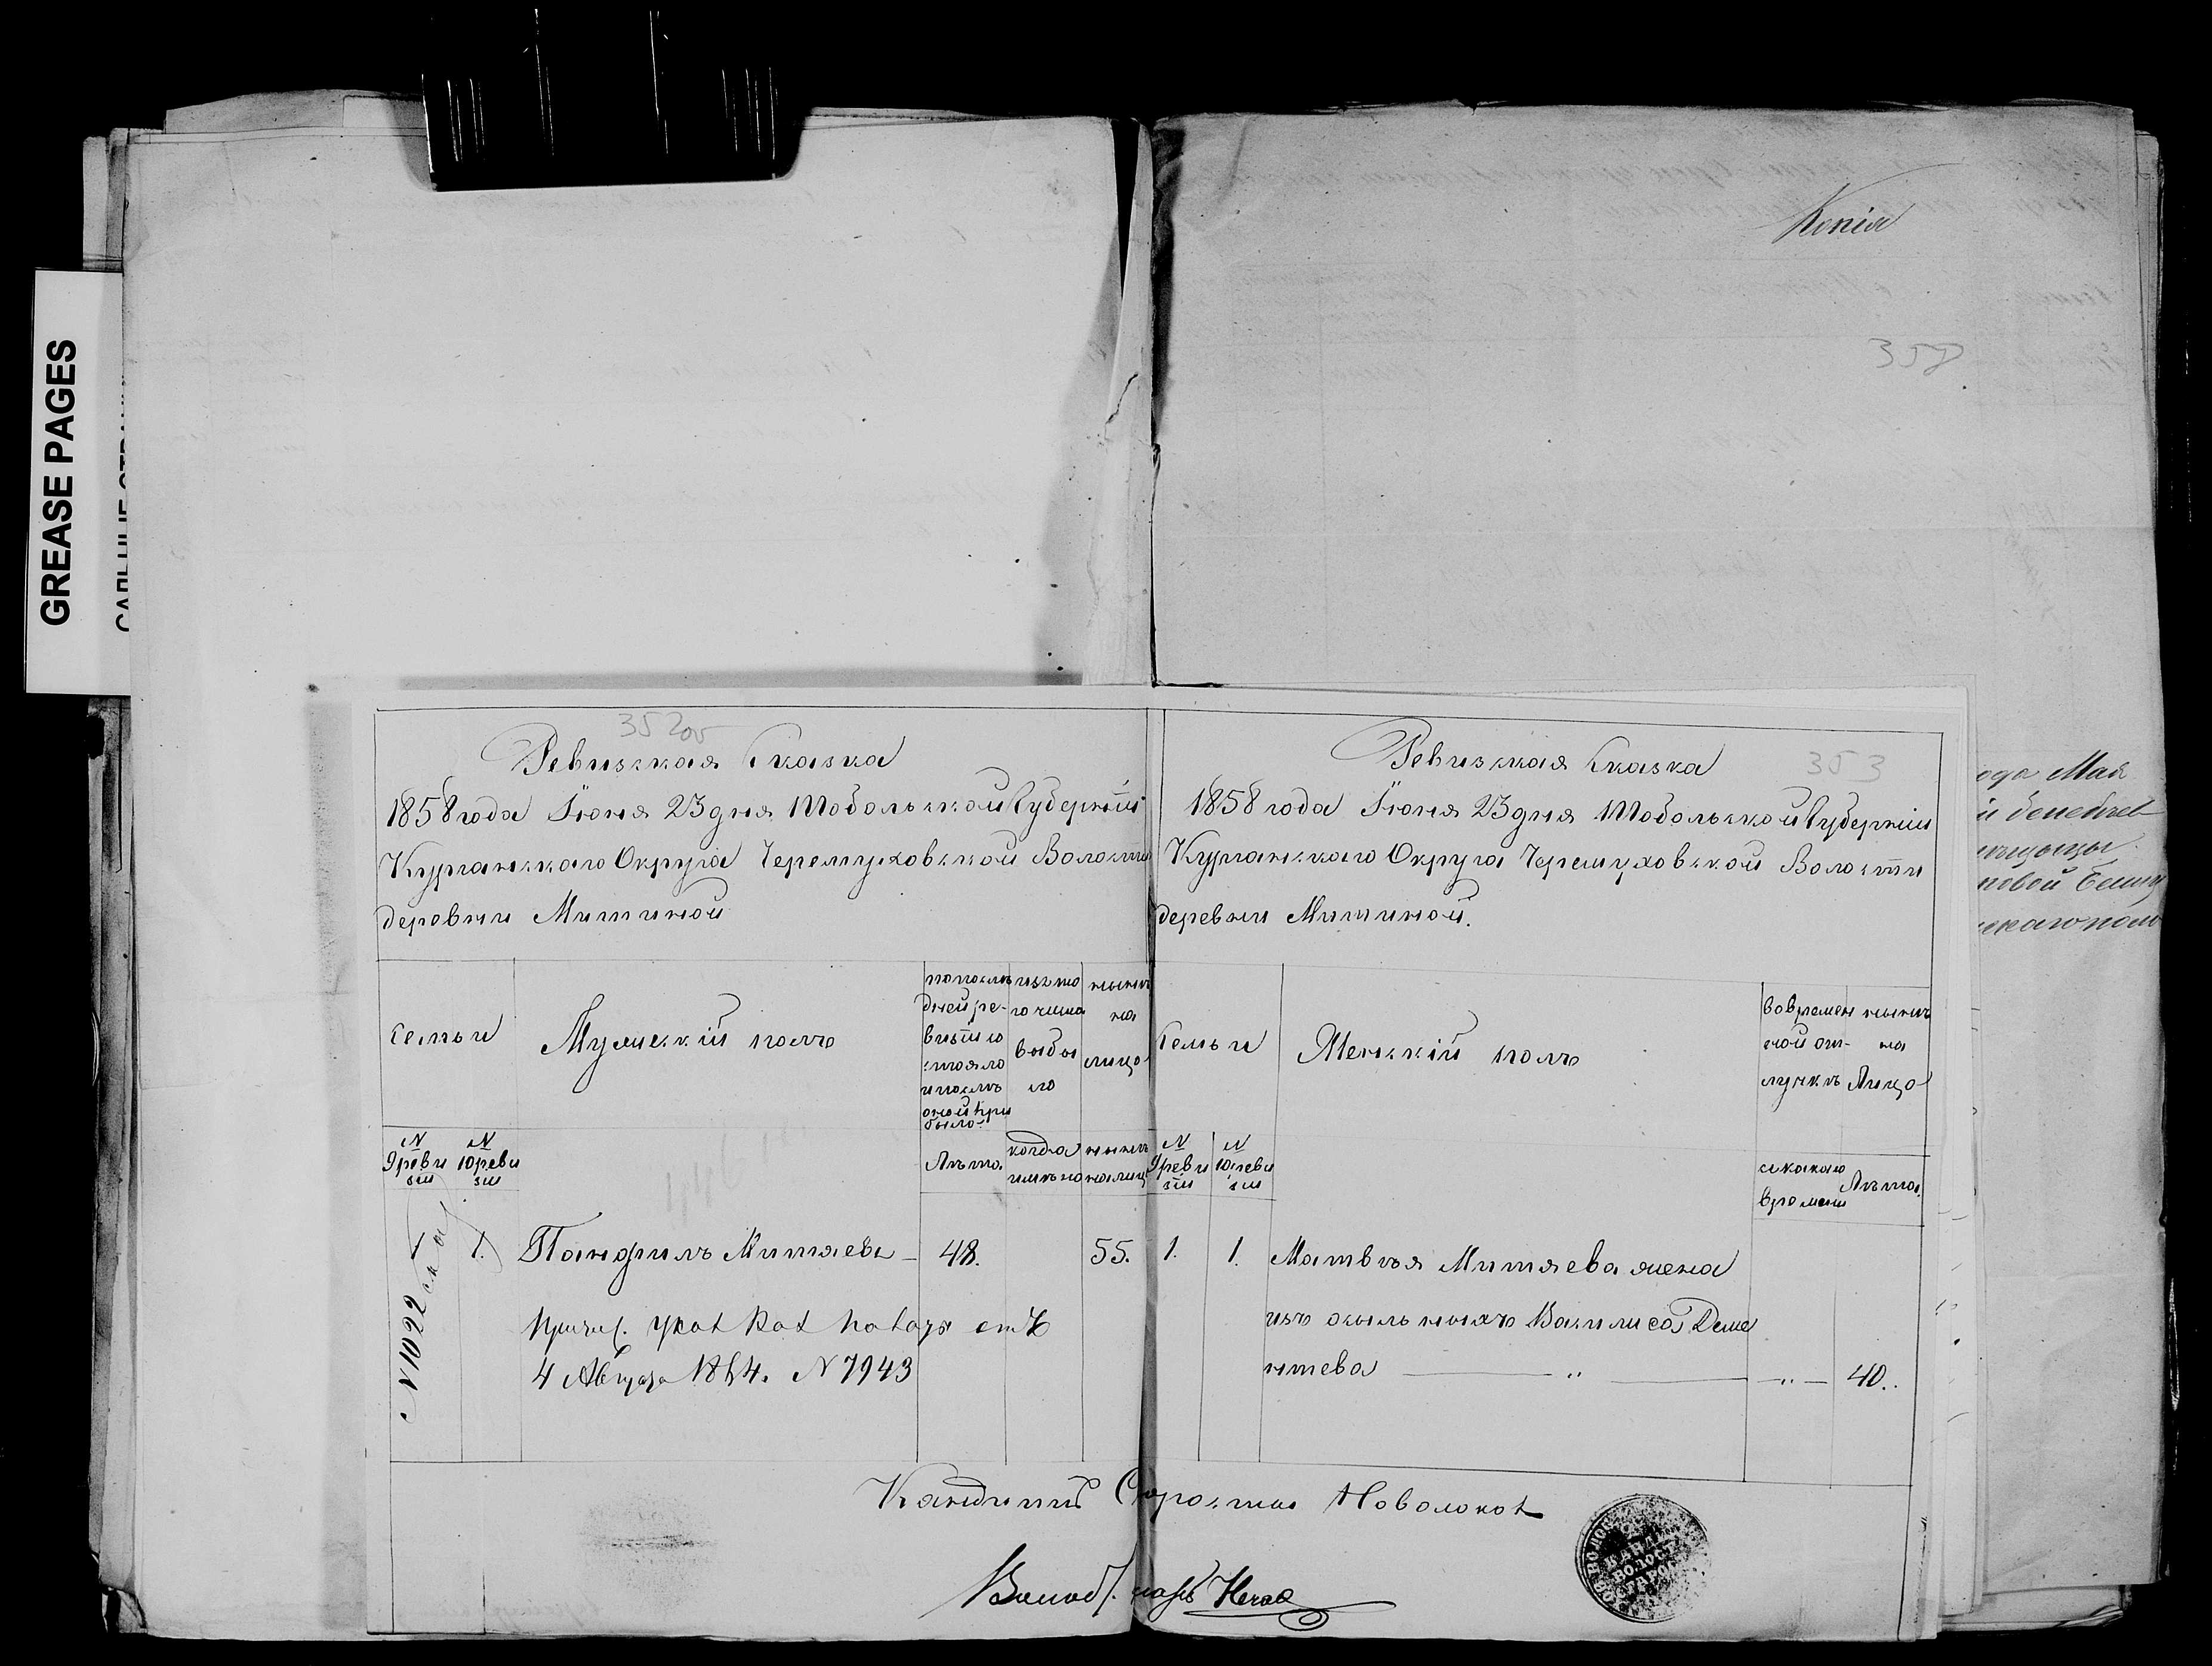 GREASE PAGES
Копія
358
352 об
Ревизская Сказка
1858 года Іюня 23 дня Тобольской Губерніи
Курганскаго Округа Черемуховской Волости
деревни Митиной
семьи
Мужескій полъ
по послѣ
дней ре-
визіи со
стояло
и послѣ
оной при
было
изъ то
го числа
выбы
ло
нынѣ
на
лицо
N
9 реви
зіи
N
10 реви
зіи
Лѣта
когда
именно
нынѣ
на лицо
N 1022
1
1.
Панфилъ Митяевъ
48.
55.
4 Августа 1864. N 7943
353
Ревизская Сказка
1858 года Іюня 23 дня Тобольской Губерніи
Курганскаго Округа Черемуховской Волости
деревни Митиной.
Семьи
Женскій полъ
во времен
ной от-
лучкѣ
нынѣ
на
Лицо
N
9 реви
зіи
N
10 реви
зіи
с какого
времени
Лѣта.
1.
1.
Матвѣя Митяева жена
изъ сыльныхъ Василиса Деме
нтева — „ — „ — 40.
Кандидат Старосты Новолоков
ода Мая